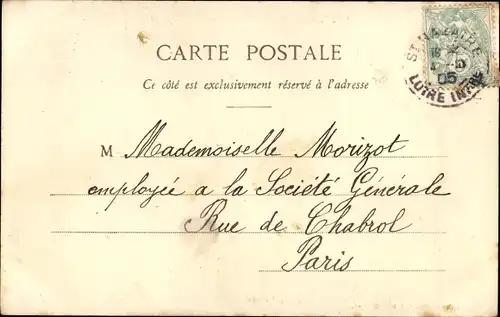 CARTE POSTALE
Ce côté est exclusivement réservé à l'adresse
ST NAZAIRE
05
LOIRE INFRE
M Mademoiselle Morizot
employée a la Société Générale
Rue de Chabrol
Paris